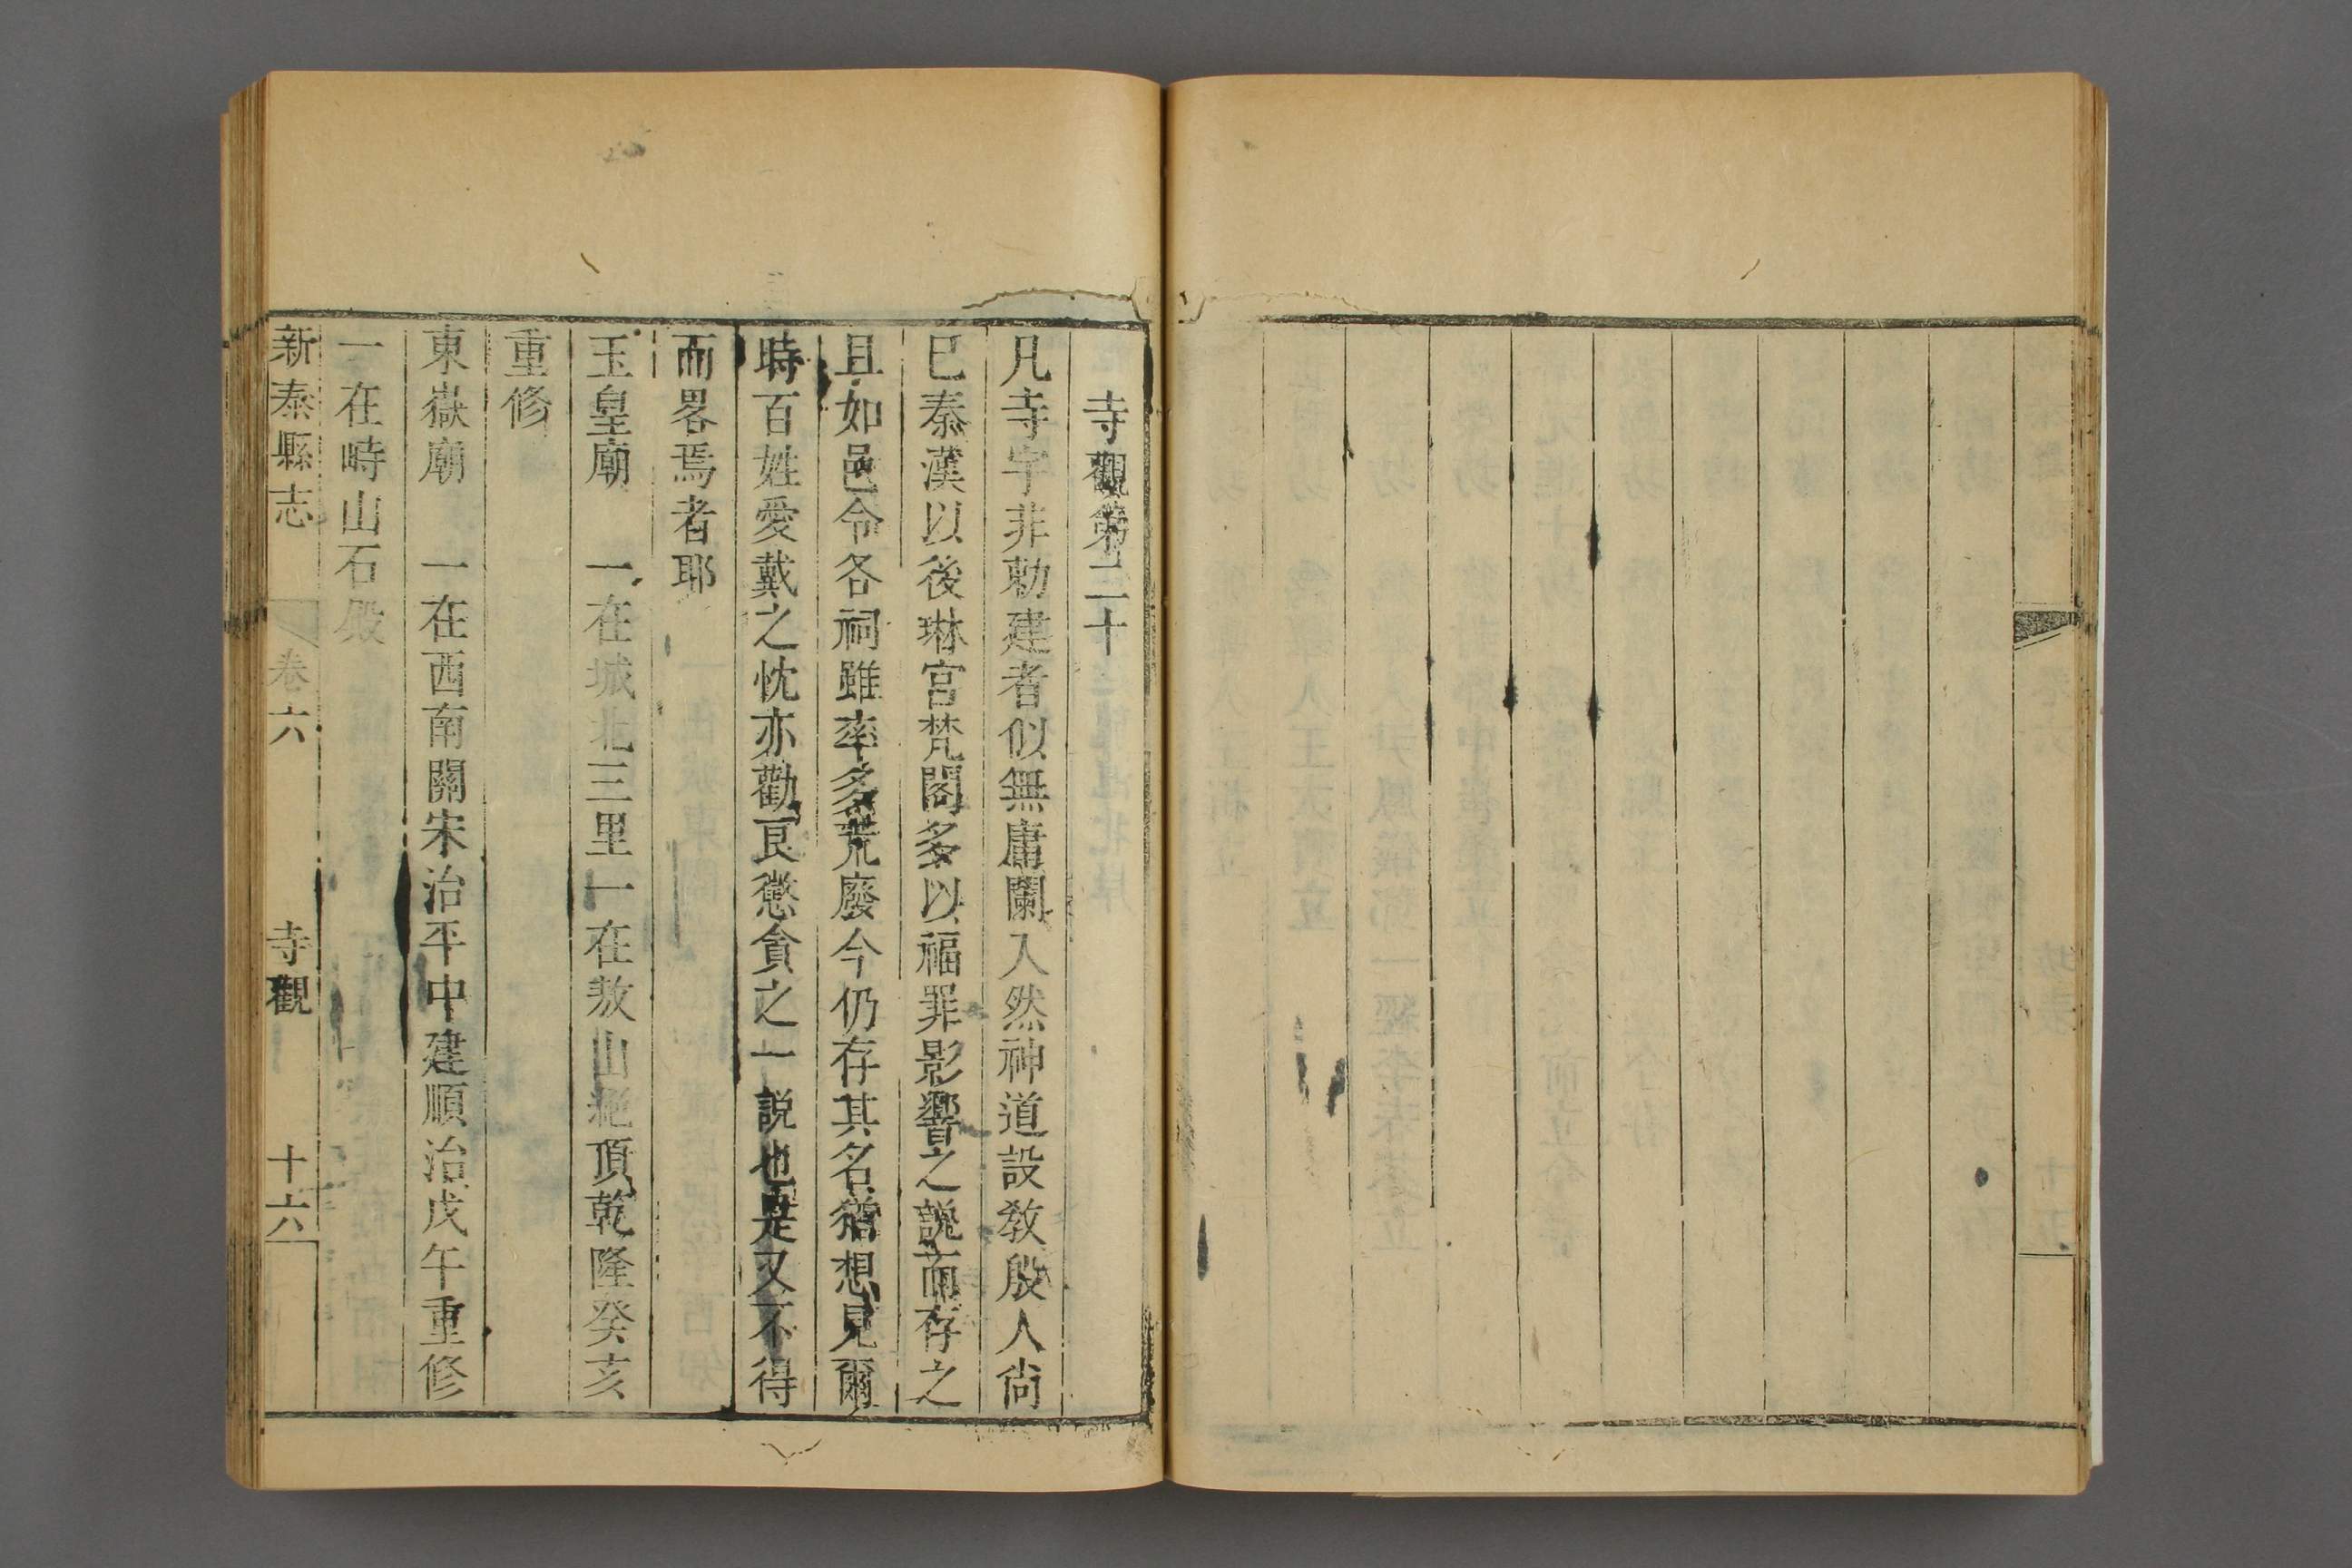 寺觀第二十
凡寺宇非勅建者似無庸闌入然神道設教殷人尚
巳秦漢以後琳宮梵閣多以福罪影響之說而存之
且如邑令各祠雖率多荒廢今仍存其名猶想見爾
時百姓愛戴之忱亦勸良懲貪之一說也是又不得
而畧焉者耶
玉皇廟 一在城北三里一在敖山絶頂乾隆癸亥
重修
東嶽廟 一在西南關宋治平中建順治戊午重修
一在峙山石殿
新泰縣志 卷六 寺觀 十六